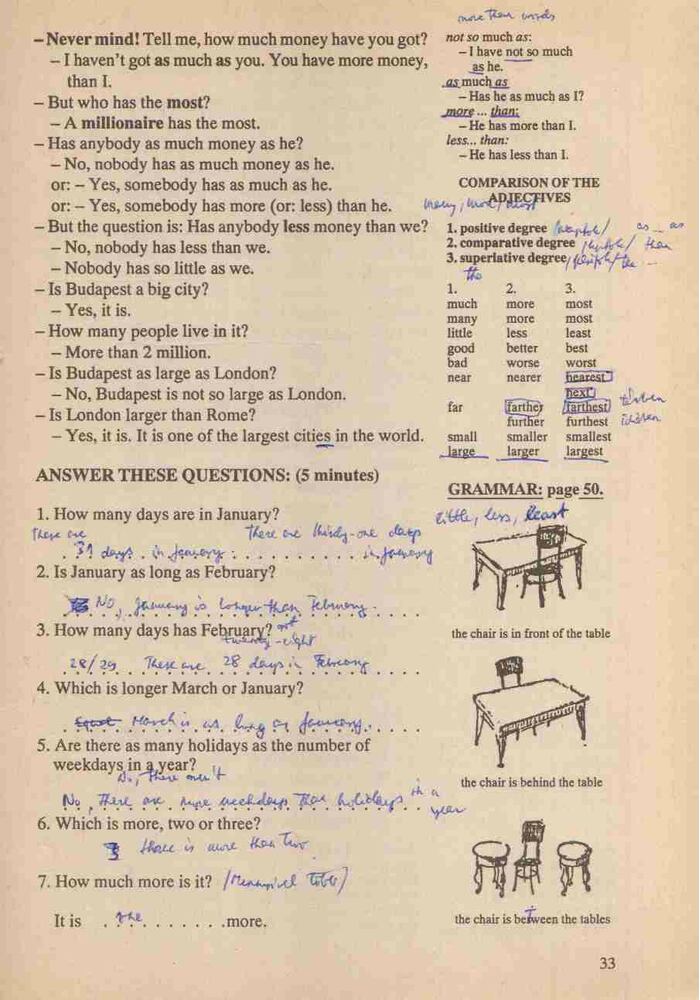 – Never mind! Tell me, how much money have you got?
– I haven't got as much as you. You have more money,
than I.
– But who has the most?
– A millionaire has the most.
– Has anybody as much money as he?
– No, nobody has as much money as he.
or: – Yes, somebody has as much as he.
or: – Yes, somebody has more (or: less) than he.
– But the question is: Has anybody less money than we?
– No, nobody has less than we.
– Nobody has so little as we.
– Is Budapest a big city?
– Yes, it is.
– How many people live in it?
– More than 2 million.
– Is Budapest as large as London?
– No, Budapest is not so large as London.
– Is London larger than Rome?
– Yes, it is. It is one of the largest cities in the world.
ANSWER THESE QUESTIONS: (5 minutes)
1. How many days are in January?
There are
There are thirdy-one days
31 days in January
in January
2. Is January as long as February?
No, January is longer than February.
3. How many days has February?
twenty-eight
28/29 These are 28 days in February
4. Which is longer March or January?
March is as long as January.
5. Are there as many holidays as the number of
weekdays in a year?
No, there aren't
No, there are more weekdays than holidays in a
year
6. Which is more, two or three?
three is more than two
7. How much more is it?
It is one more.
more than words
not so much as:
– I have not so much
as he.
as much as
– Has he as much as I?
more ... than:
– He has more than I.
less... than:
– He has less than I.
COMPARISON OF THE
ADJECTIVES
many, more, most
1. positive degree as ... as
2. comparative degree than
3. superlative degree the ...
the
1. 2. 3.
much more most
many more most
little less least
good better best
bad worse worst
near nearer nearest
next
far farther farthest
further furthest
small smaller smallest
large larger largest
GRAMMAR: page 50.
little, less, least
the chair is in front of the table
the chair is behind the table
the chair is between the tables
33